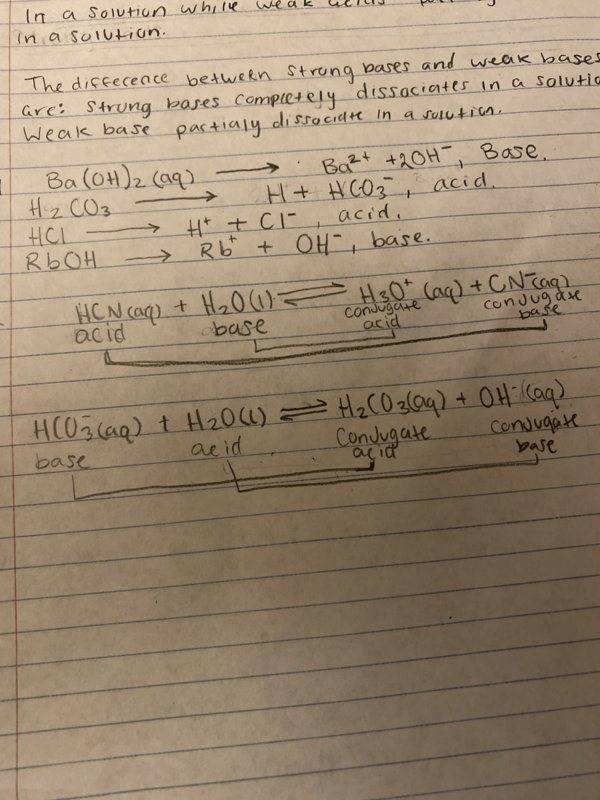 in a solution while weak acids
in a solution.
The difference between strong bases and weak bases
are: Strong bases completely dissociates in a solution
Weak base partialy dissociate in a solution.
Ba(OH)2 (aq) ⟶ Ba²⁺ + 2OH⁻, Base.
H2CO3 ⟶ H + HCO3⁻, acid.
HCl ⟶ H⁺ + Cl⁻, acid.
RbOH ⟶ Rb⁺ + OH⁻, base.
HCN(aq) + H2O(l) ⇌ H3O⁺ (aq) + CN⁻(aq)
acid base conjugate acid conjugate base
HCO3⁻(aq) + H2O(l) ⇌ H2CO3(aq) + OH⁻(aq)
base acid conjugate acid conjugate base